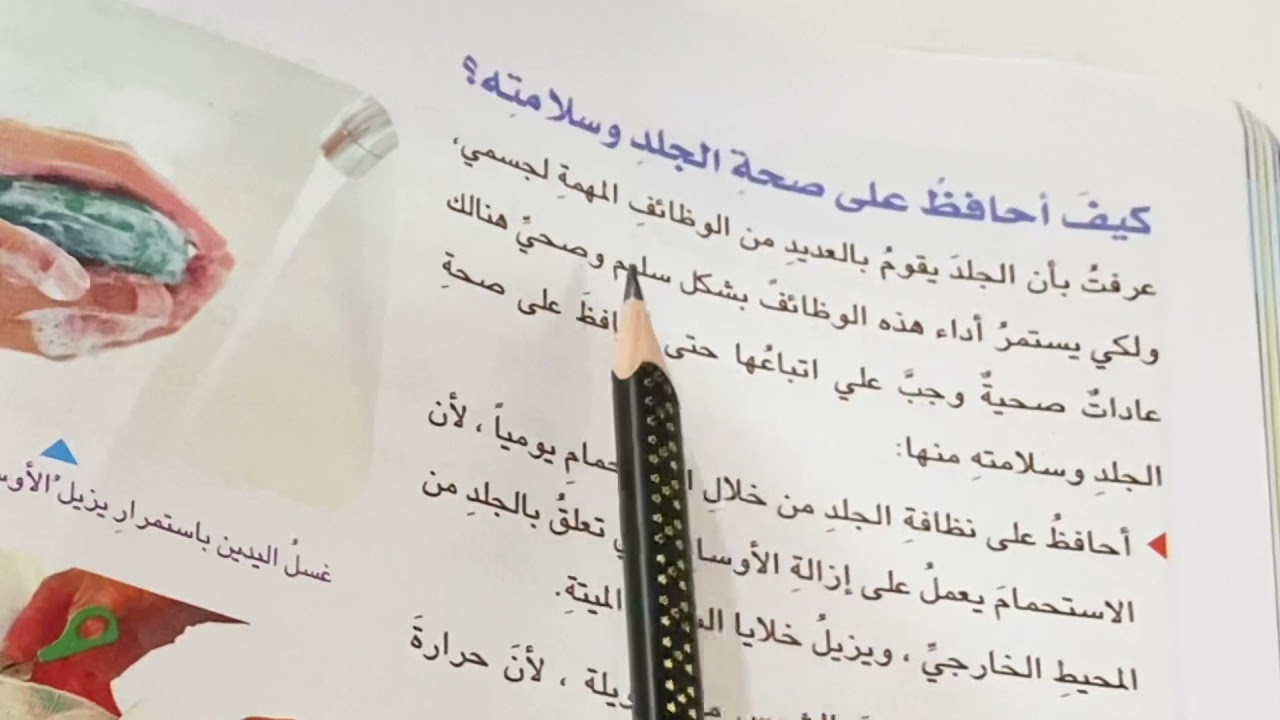 كيفَ أحافظُ على صحةِ الجلدِ وسلامتِه؟
عرفتُ بأن الجلدَ يقومُ بالعديدِ من الوظائفِ المهمةِ لجسمي،
ولكي يستمرُ أداء هذه الوظائفَ بشكل سليم وصحيٍّ هنالك
عاداتٌ صحيةٌ وجبَّ علي اتباعُها حتى على صحةِ
الجلدِ وسلامتهِ منها:
أحافظُ على نظافةِ الجلدِ من خلالِ يومياً، لأن
الاستحمامَ يعملُ على إزالةِ تعلقُ بالجلدِ من
المحيطِ الخارجيِّ، ويزيلُ خلايا الميتةِ.
لأنَ حرارةَ
غسلُ اليدين باستمرارِ يزيلُ